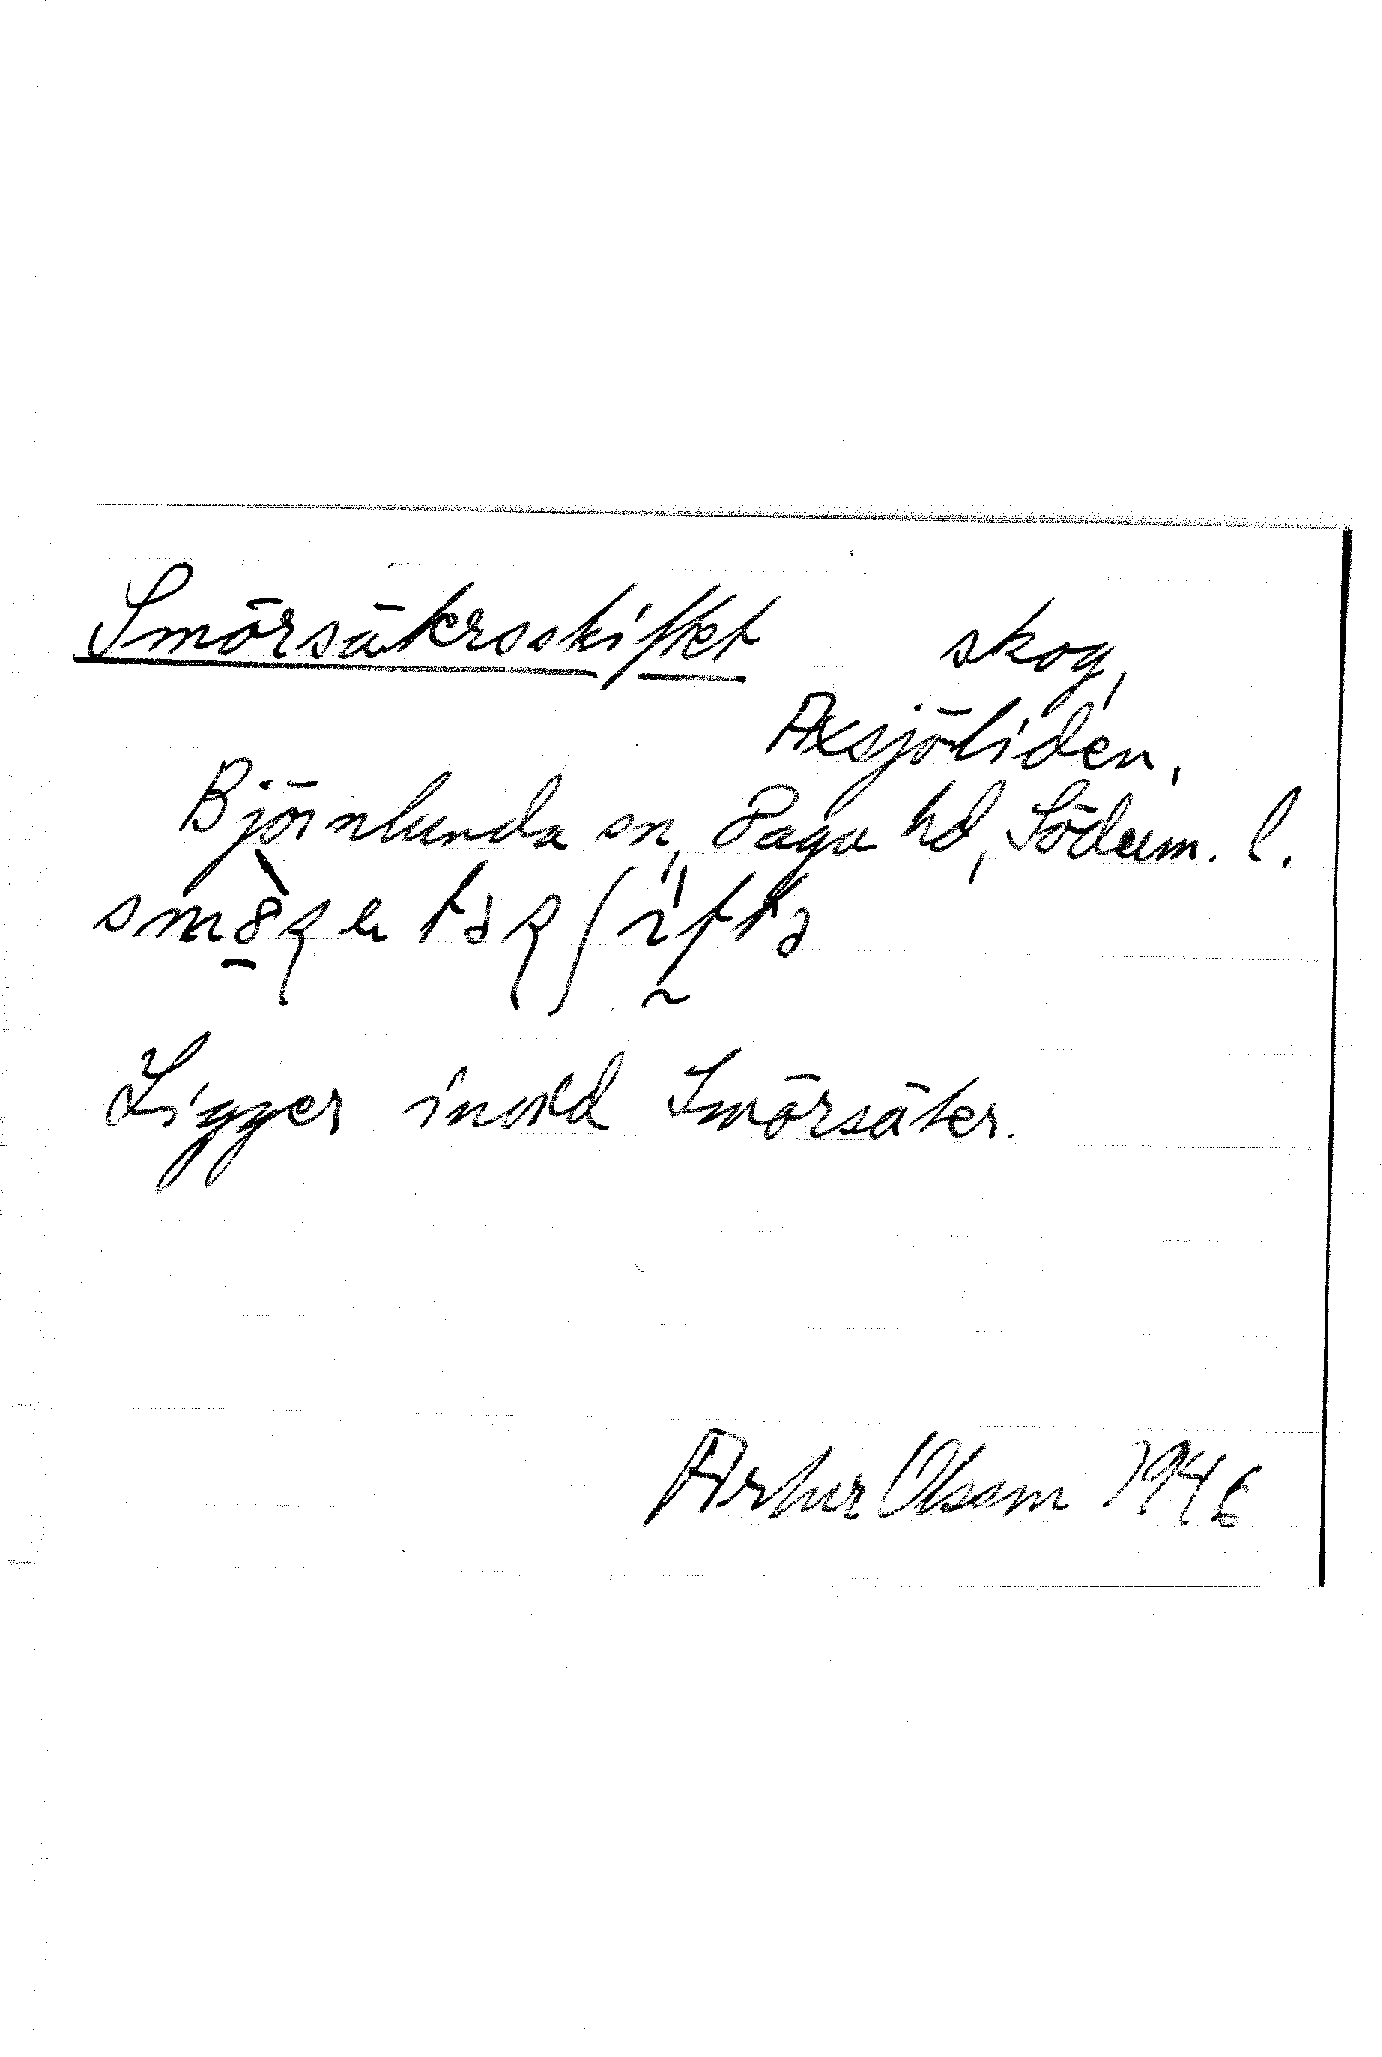 Smörsäkersskiftet skog,
Axsjöliden,
Björnlunda sn, Daga hd, Söderm. l.
Ligger inord Smörsäker.
Artur Olsson 1946